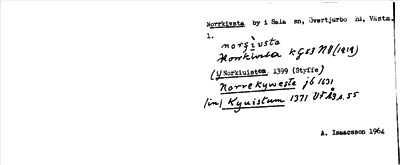 Norrkivsta by i Sala sn, Övertjurbo hd, Västm.
1.
nors̀ivsta
Norrkivsta k G53 NV (1919)
(y Norkiuistom 1399 (Styffe)
Norrekyweste jb 1631
(in) Kyuistum 1371 Vf Åg s. 55
A. Isaacsson 1964